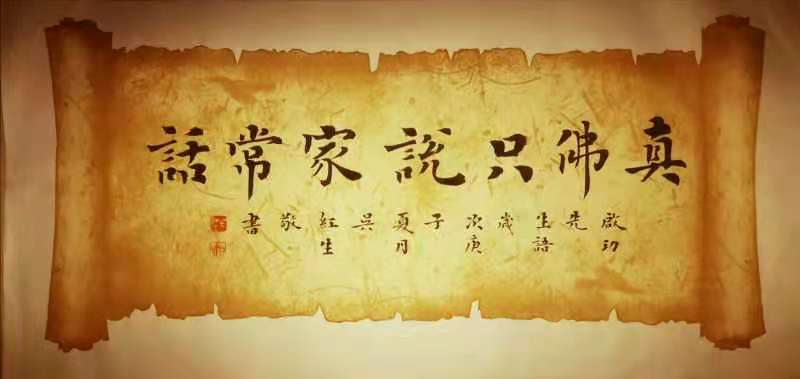 真佛只說家常話
啟功先生語歲次庚子夏月吳紅生敬書